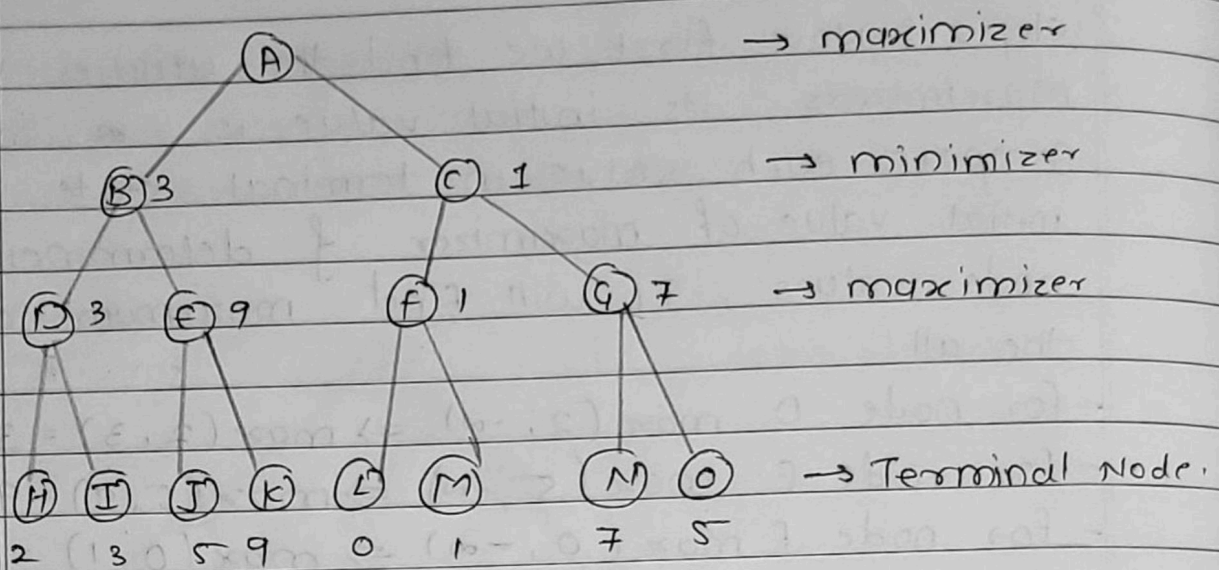 A → maximizer
B 3 C 1 → minimizer
D 3 E 9 F 1 G 7 → maximizer
H I J K L M N O → Terminal Node.
2 3 5 9 0 1 7 5